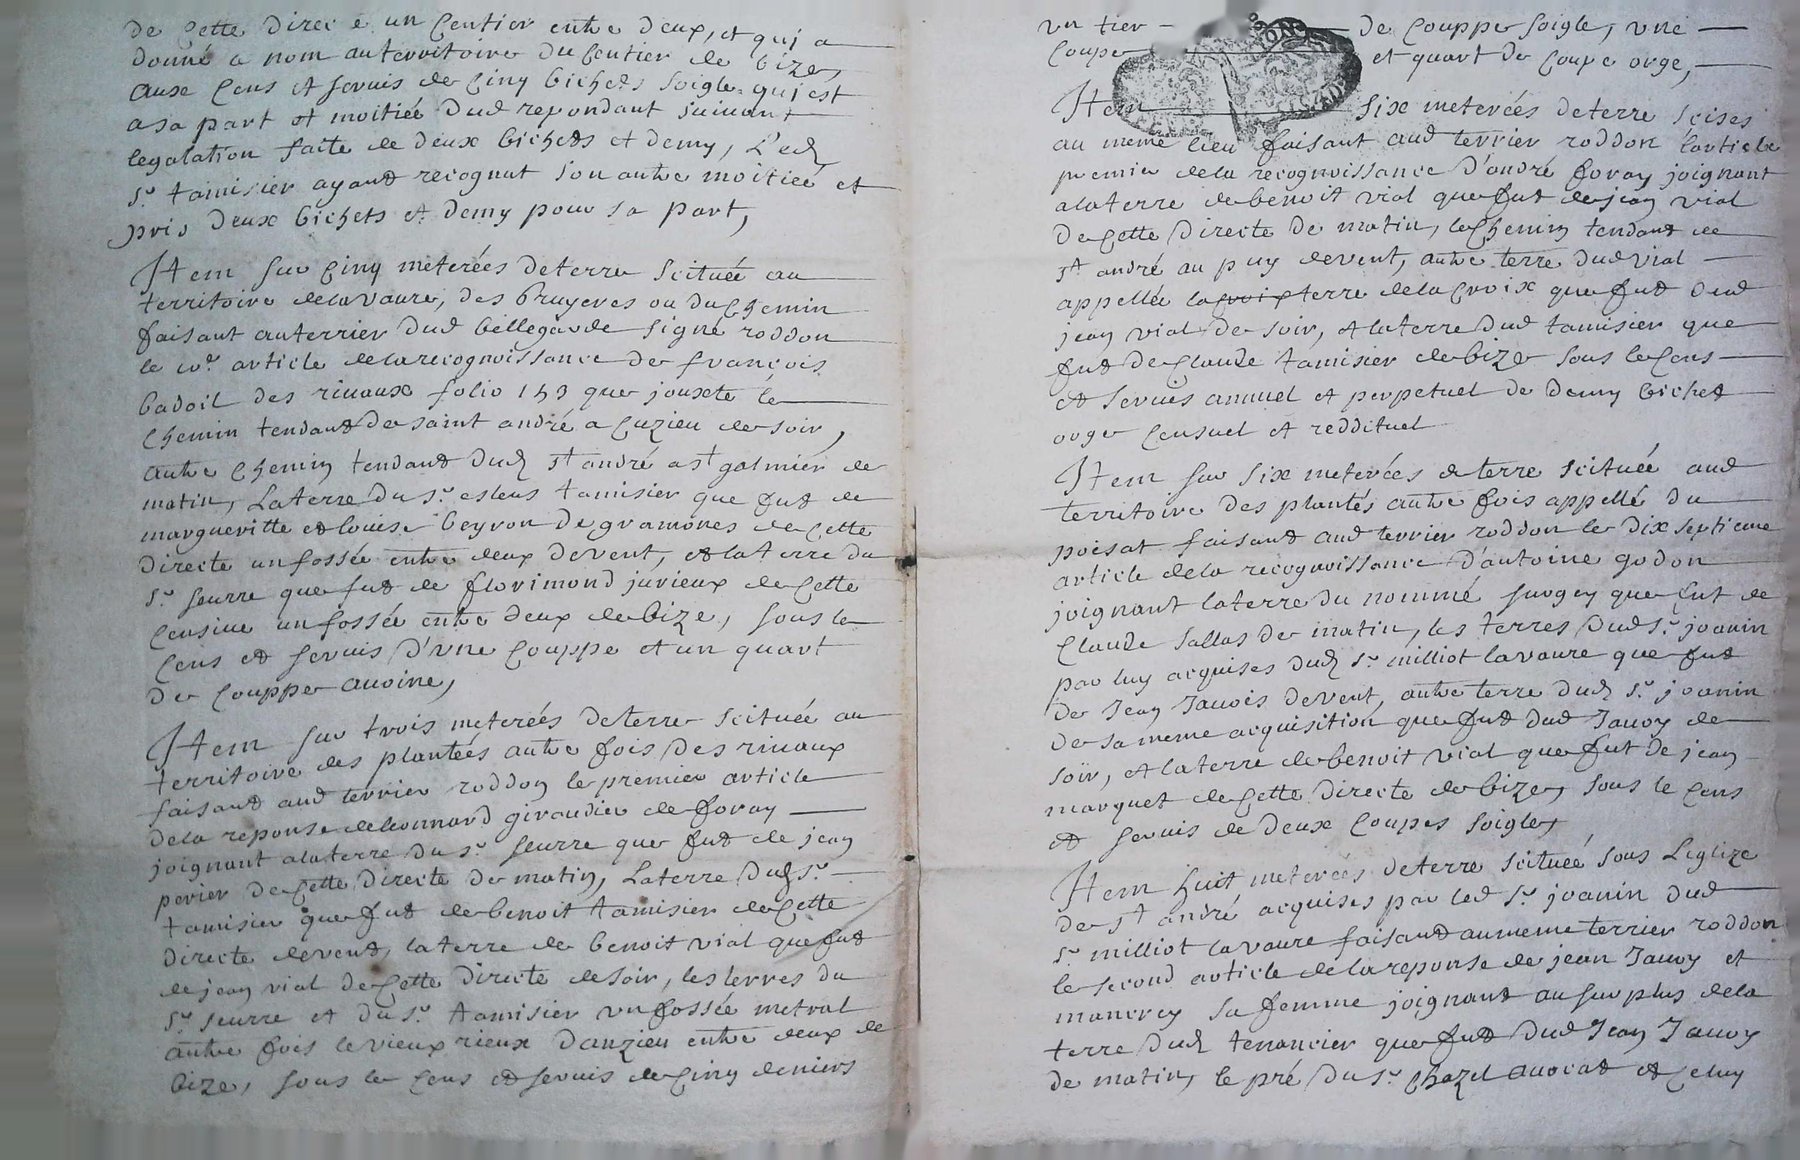 de cette direc e un sentier entre deux, et qui a
donné a nom au territoire du sentier de bize,
aux cens et servis de cinq bichets soigle qui est
a sa part et moitiée dud repondant suivant
legalation faite de deux bichets et demy, L'ed
sr. tamisier ayant recognut son autre moitiée et
pris deux bichets et demy pour sa part,
Item sur cinq meterées de terre scituée au
territoire de la vaure, des bruyeres ou du chemin
faisant au terrier dud bellegarde signé roddon
le article de la recognoissance de françois
badoil des rivaux folio 153 que jouxte le
chemin tendant de saint andré a cuzieu de soir,
autre chemin tendant dud st andré a st galmier de
matin, La terre du sr. tamisier que fut de
margueritte et louise beyron de gramones de cette
directe un fossée entre deux de vent, et la terre du
sr. seurre que fut de florimond jurieux de cette
censive un fossée entre deux de bize, sous le
cens et servis d'une couppe et un quart
de couppe avoine,
Item sur trois meterées de terre scituée au
territoire des plantées autre fois des rivaux
faisant aud terrier roddon le premier article
de la reponse de leonnard giraudier de foray
joignant a la terre du sr. seurre que fut de jean
perier de cette directe de matin, La terre dud sr.
tamisier que fut de benoit tamisier de cette
directe de vent, la terre de benoit vial que fut
de jean vial de cette directe de soir, les terres du
sr. seurre et du sr. tamisier un fossée metral
autre fois le vieux rieux d'anzieu entre deux de
bize, sous le cens et servis de cinq deniers
un tier de couppe soigle, une
coupe et quart de coupe orge,
Item six meterées de terre scises
au meme lieu faisant aud terrier roddon l'article
premier de la recognoissance d'andré foray joignant
a la terre de benoit vial que fut de jean vial
de cette directe de matin, le chemin tendant de
st andré au puy de vent, autre terre dud vial
appellée la croix terre de la croix que fut dud
jean vial de soir, et la terre dud tamisier que
fut de claude tamisier de bize sous le cens
et servis annuel et perpetuel de demy bichet
orge censuel et reddituel
Item sur six meterées de terre scituée aud
territoire des plantés autre fois appellé du
poësat faisant aud terrier roddon le dix septieme
article de la recognoissance d'antoine godon
joignant la terre du nommé surgey que fut de
claude sallas de matin, les terres dud sr. joanin
par luy acquises dud sr. milliot lavaure que fut
de jean Javois de vent, autre terre dud sr. joanin
de sa meme acquisition que fut dud Javoy de
soir, et la terre de benoit vial que fut de jean
marquet de cette directe de bize, sous le cens
et servis de deux coupes soigle,
Item huit meterées de terre scituée sous L'eglize
de st andré acquises par led sr. joanin dud
sr. milliot lavaure faisant au meme terrier roddon
le second article de la reponse de jean Javoy et
sa femme joignant au surplus de la
terre dud tenancier que fut dud Jean Javoy
de matin, le pré du sr. chazel avocat et celuy